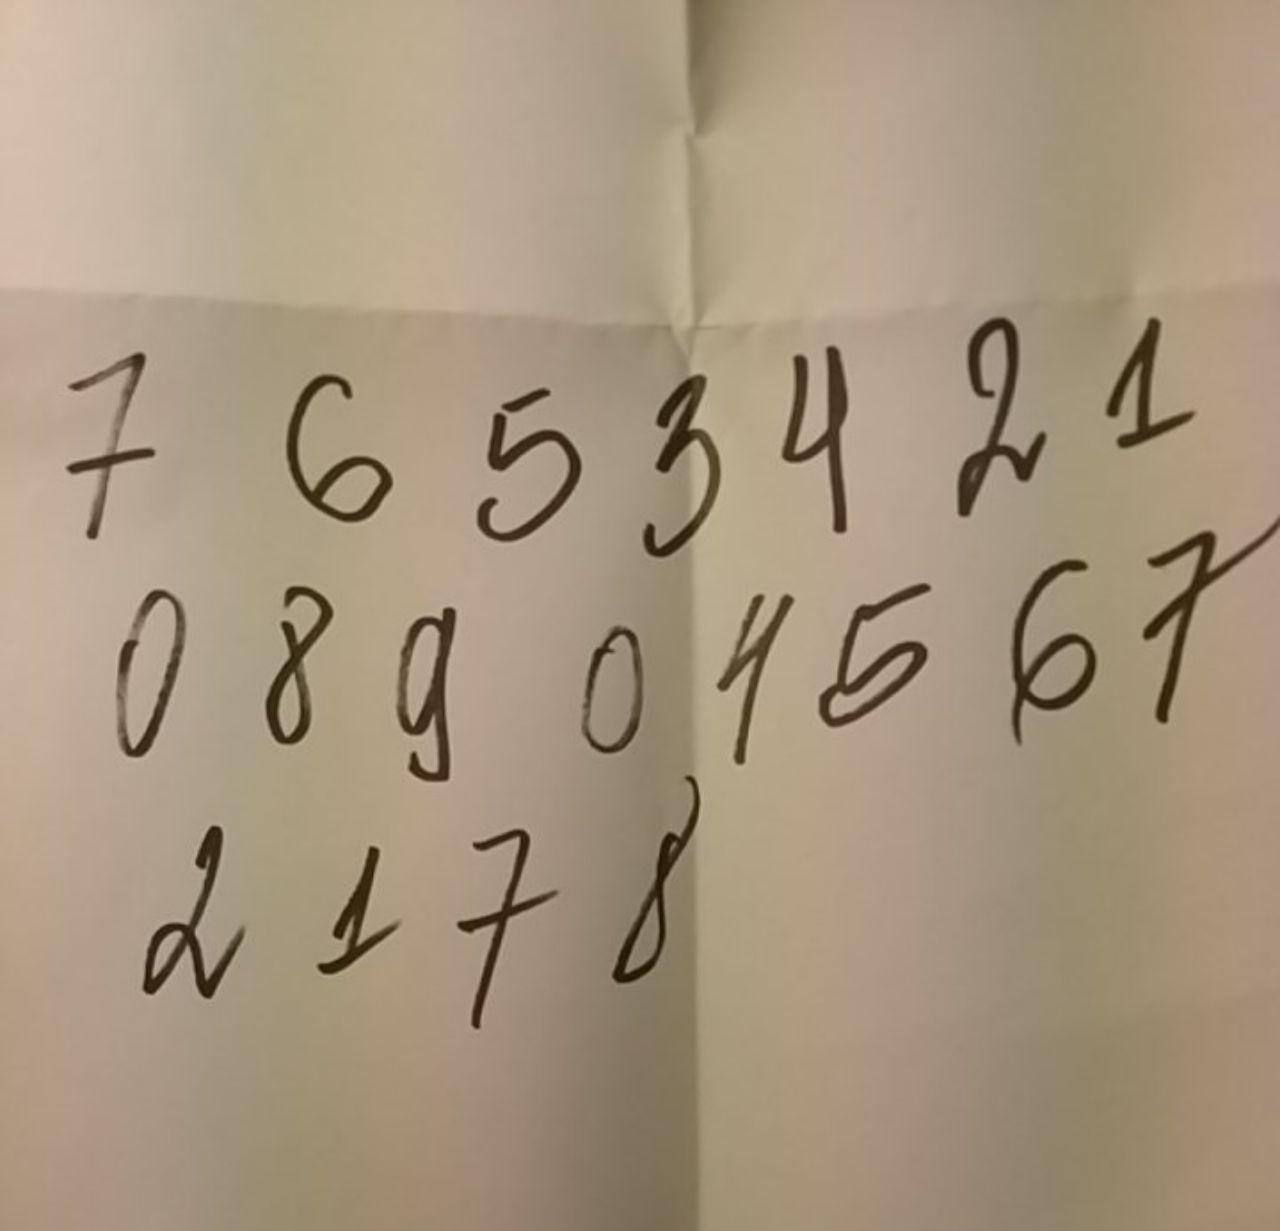 7 6 5 3 4 2 1
0 8 9 0 4 5 6 7
2 1 7 8